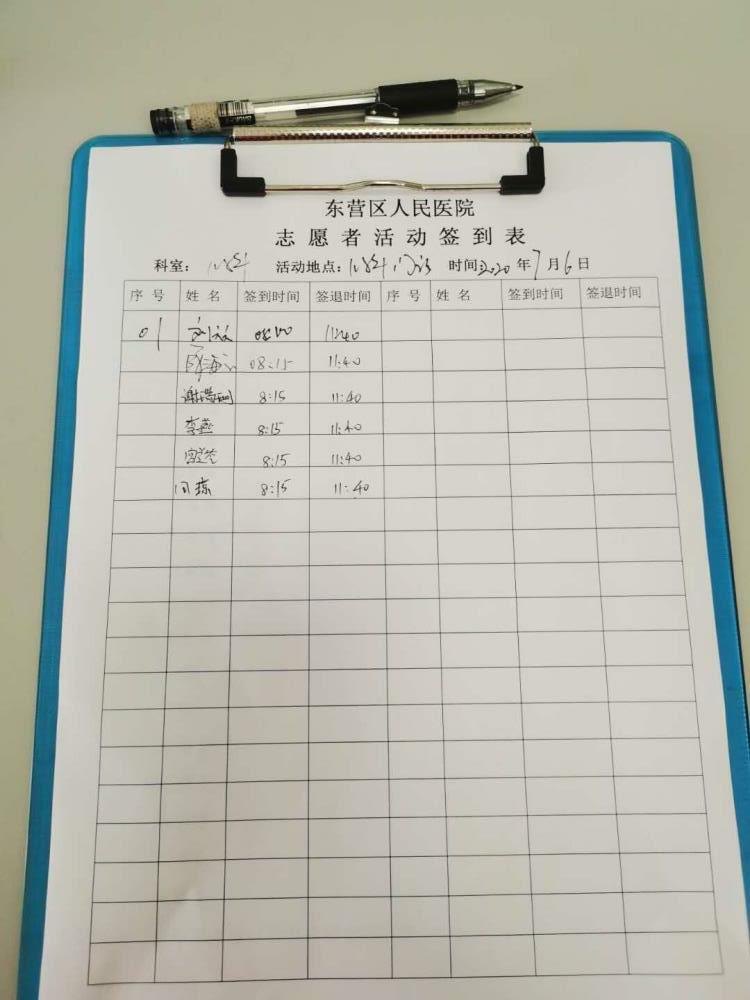 东营区人民医院
志愿者活动签到表
科室： 活动地点： 门诊 时间 2020年7月6日
序号 姓名 签到时间 签退时间 序号 姓名 签到时间 签退时间
01 刘 08:00 11:40
08:15 11:40
谢 8:15 11:40
李燕 8:15 11:40
8:15 11:40
闫琼 8:15 11:40